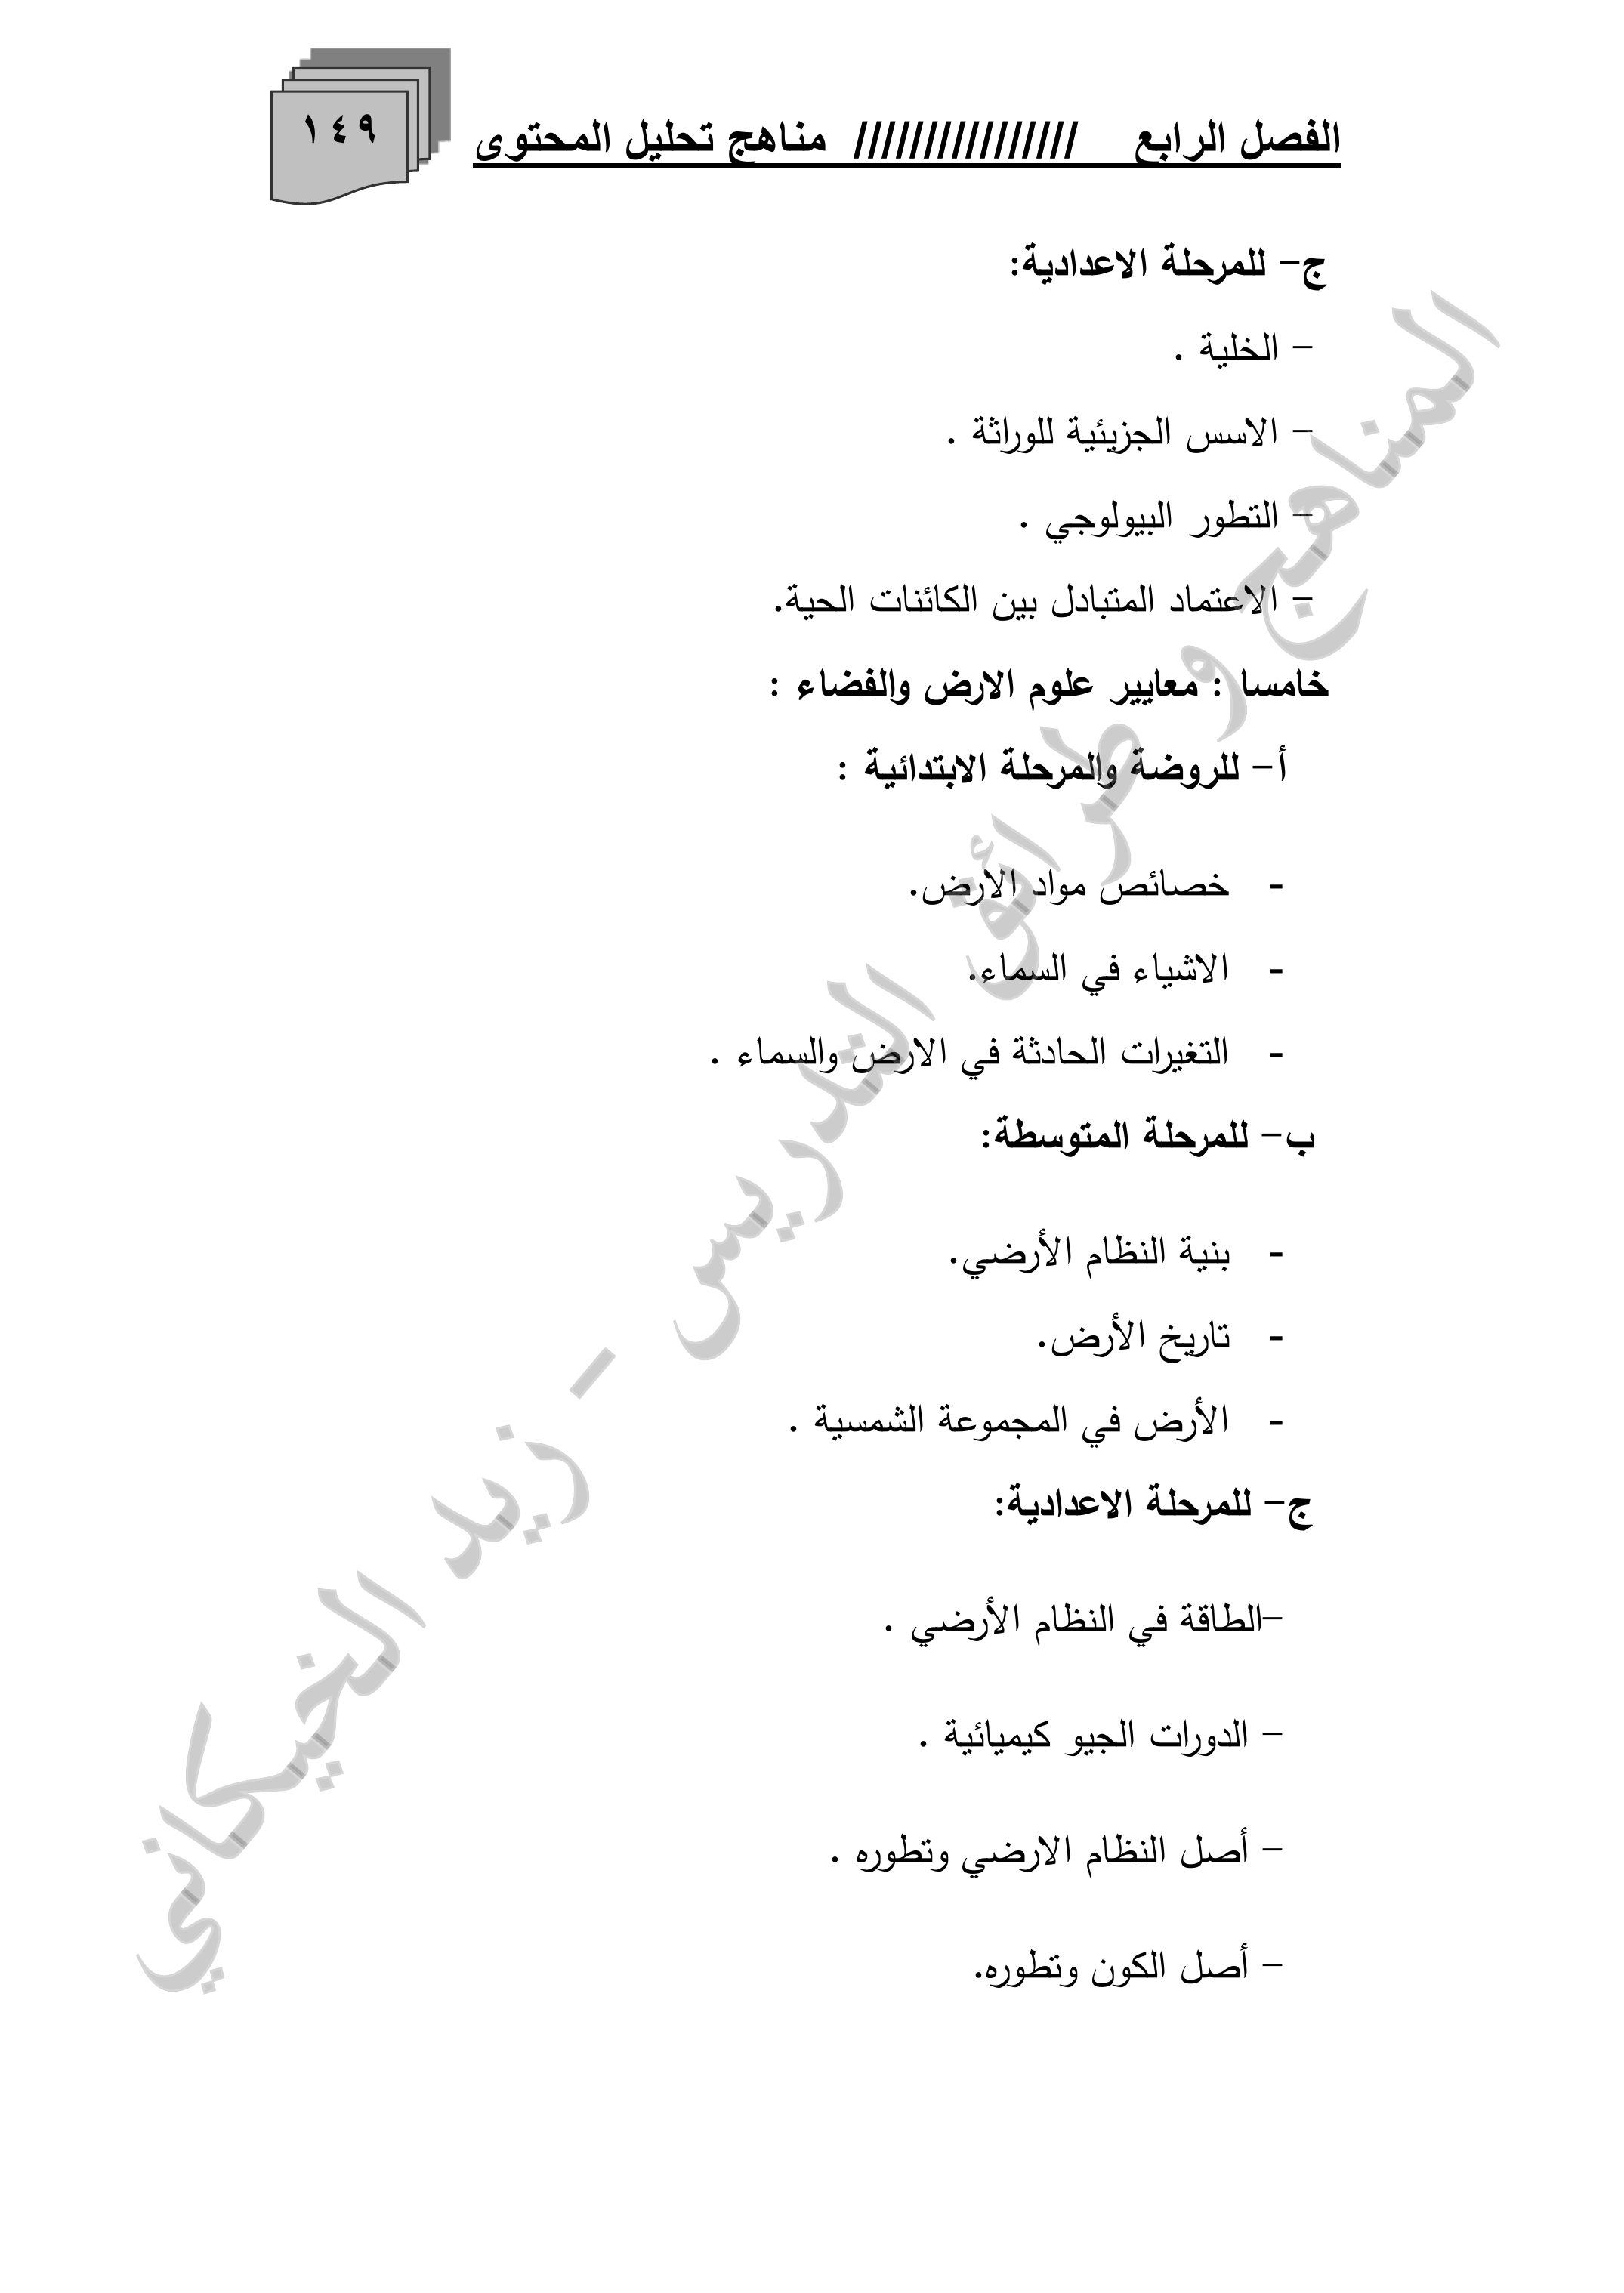 الفصل الرابع //////////////// مناهج تحليل المحتوى
١٤٩
ج- للمرحلة الاعدادية:
- الخلية .
- الاسس الجزيئية للوراثة .
- التطور البيولوجي .
- الاعتماد المتبادل بين الكائنات الحية.
خامسا : معايير علوم الارض والفضاء :
أ- للروضة والمرحلة الابتدائية :
- خصائص مواد الارض.
- الاشياء في السماء.
- التغيرات الحادثة في الارض والسماء .
ب- للمرحلة المتوسطة:
- بنية النظام الأرضي.
- تاريخ الأرض.
- الأرض في المجموعة الشمسية .
ج- للمرحلة الاعدادية:
-الطاقة في النظام الأرضي .
- الدورات الجيو كيميائية .
- أصل النظام الارضي وتطوره .
- أصل الكون وتطوره.
المناهج وطرائق التدريس - زيد الخيكاني